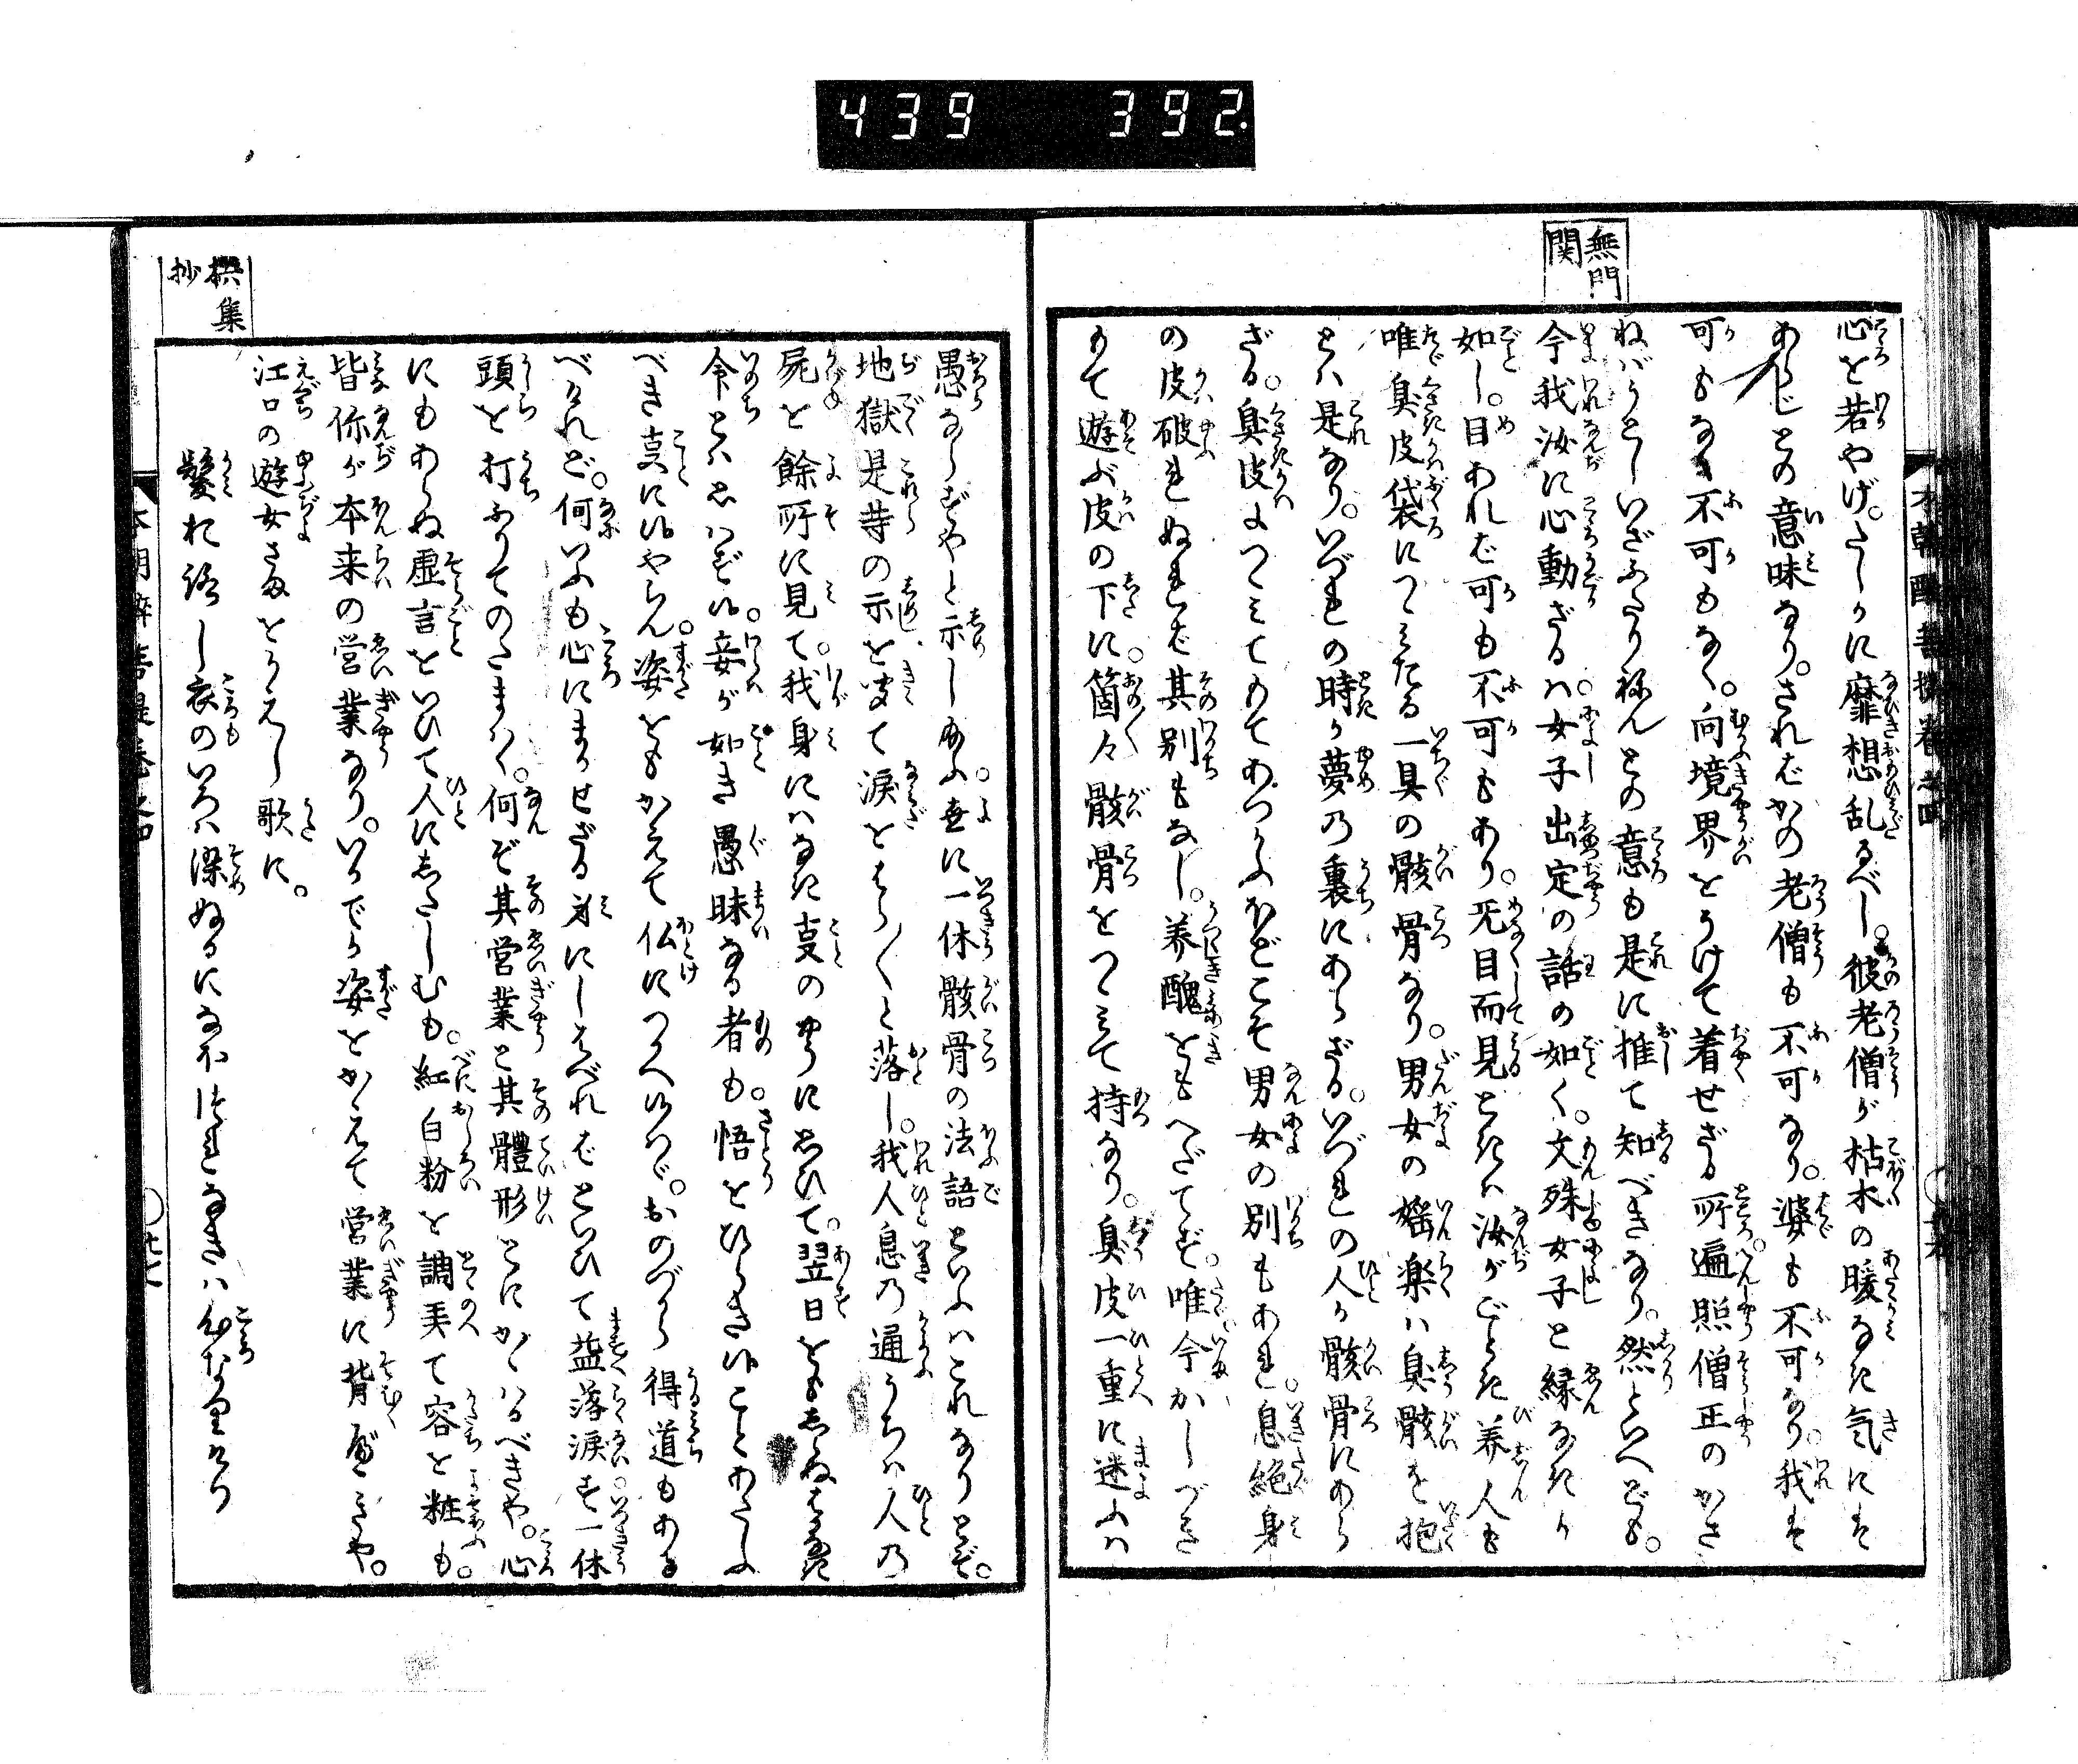 439 392
無門
関
心を若やげ。たしかに靡想乱るべし。彼老僧が枯木の暖なき気にも
あらじとの意味なり。されどかの老僧も不可なり。婆も不可なり。我も
可もなき不可もなく。向境界をうけて着せざる所遍照僧正のかさ
ねばうとしいざふたり祢んとの意も是に推て知べきなり。然といへども。
今我汝に心動ざるハ。女子出定の話の如く。文殊女子と縁なきか
如し。目あれど可も不可もあり。无目而見ときハ汝がごとき养人も
唯臭皮袋につゝみたる一具の骸骨なり。男女の婬楽ハ臭骸を抱
とハ是なり。いづれの時か夢の裏にあらざる。いづれの人か骸骨にあら
ざる。臭皮につゝみてもてあつかふほどこそ男女の別もあれ。息絶身
の皮破れぬれど其別もなし。养醜をもへだてず。唯今かしづき
もて遊ぶ皮の下に。箇々骸骨をつゝみて持なり。臭皮一重に迷ふハ
撰集
抄
愚ならずやと示し給ふ。世に一休骸骨の法語といふハこれなりとぞ。
地獄是等の示を聞て涙をはら〱と落し。我人息の通うちハ人の
屍を餘所に見て。我身にハなき叓のやうに思ひて。翌日をもしらぬはかなき
命とハ思ハず候。妾が如き愚昧なる者も。悟をひらき候ことあたふ
べき叓に候やらん。姿をもかえて仏につかへ候ハゞ。おのづから得道もある
べけれど。何いふも心にまかせざる身にしはべれどといひて益落涙す。一休
頭を打ふりてのたまハく。何ぞ其営業と其體形とにかゝハるべきや。心
にもあらぬ虚言をいひて人にたしむも。紅白粉を調美て容を粧も。
皆你が本来の営業なり。いかでか姿をかえて営業に背べきや。
江口の遊女さまをかえし歌に。
髪おろし衣のいろハ染ぬるになほつれなきハ心なりけり